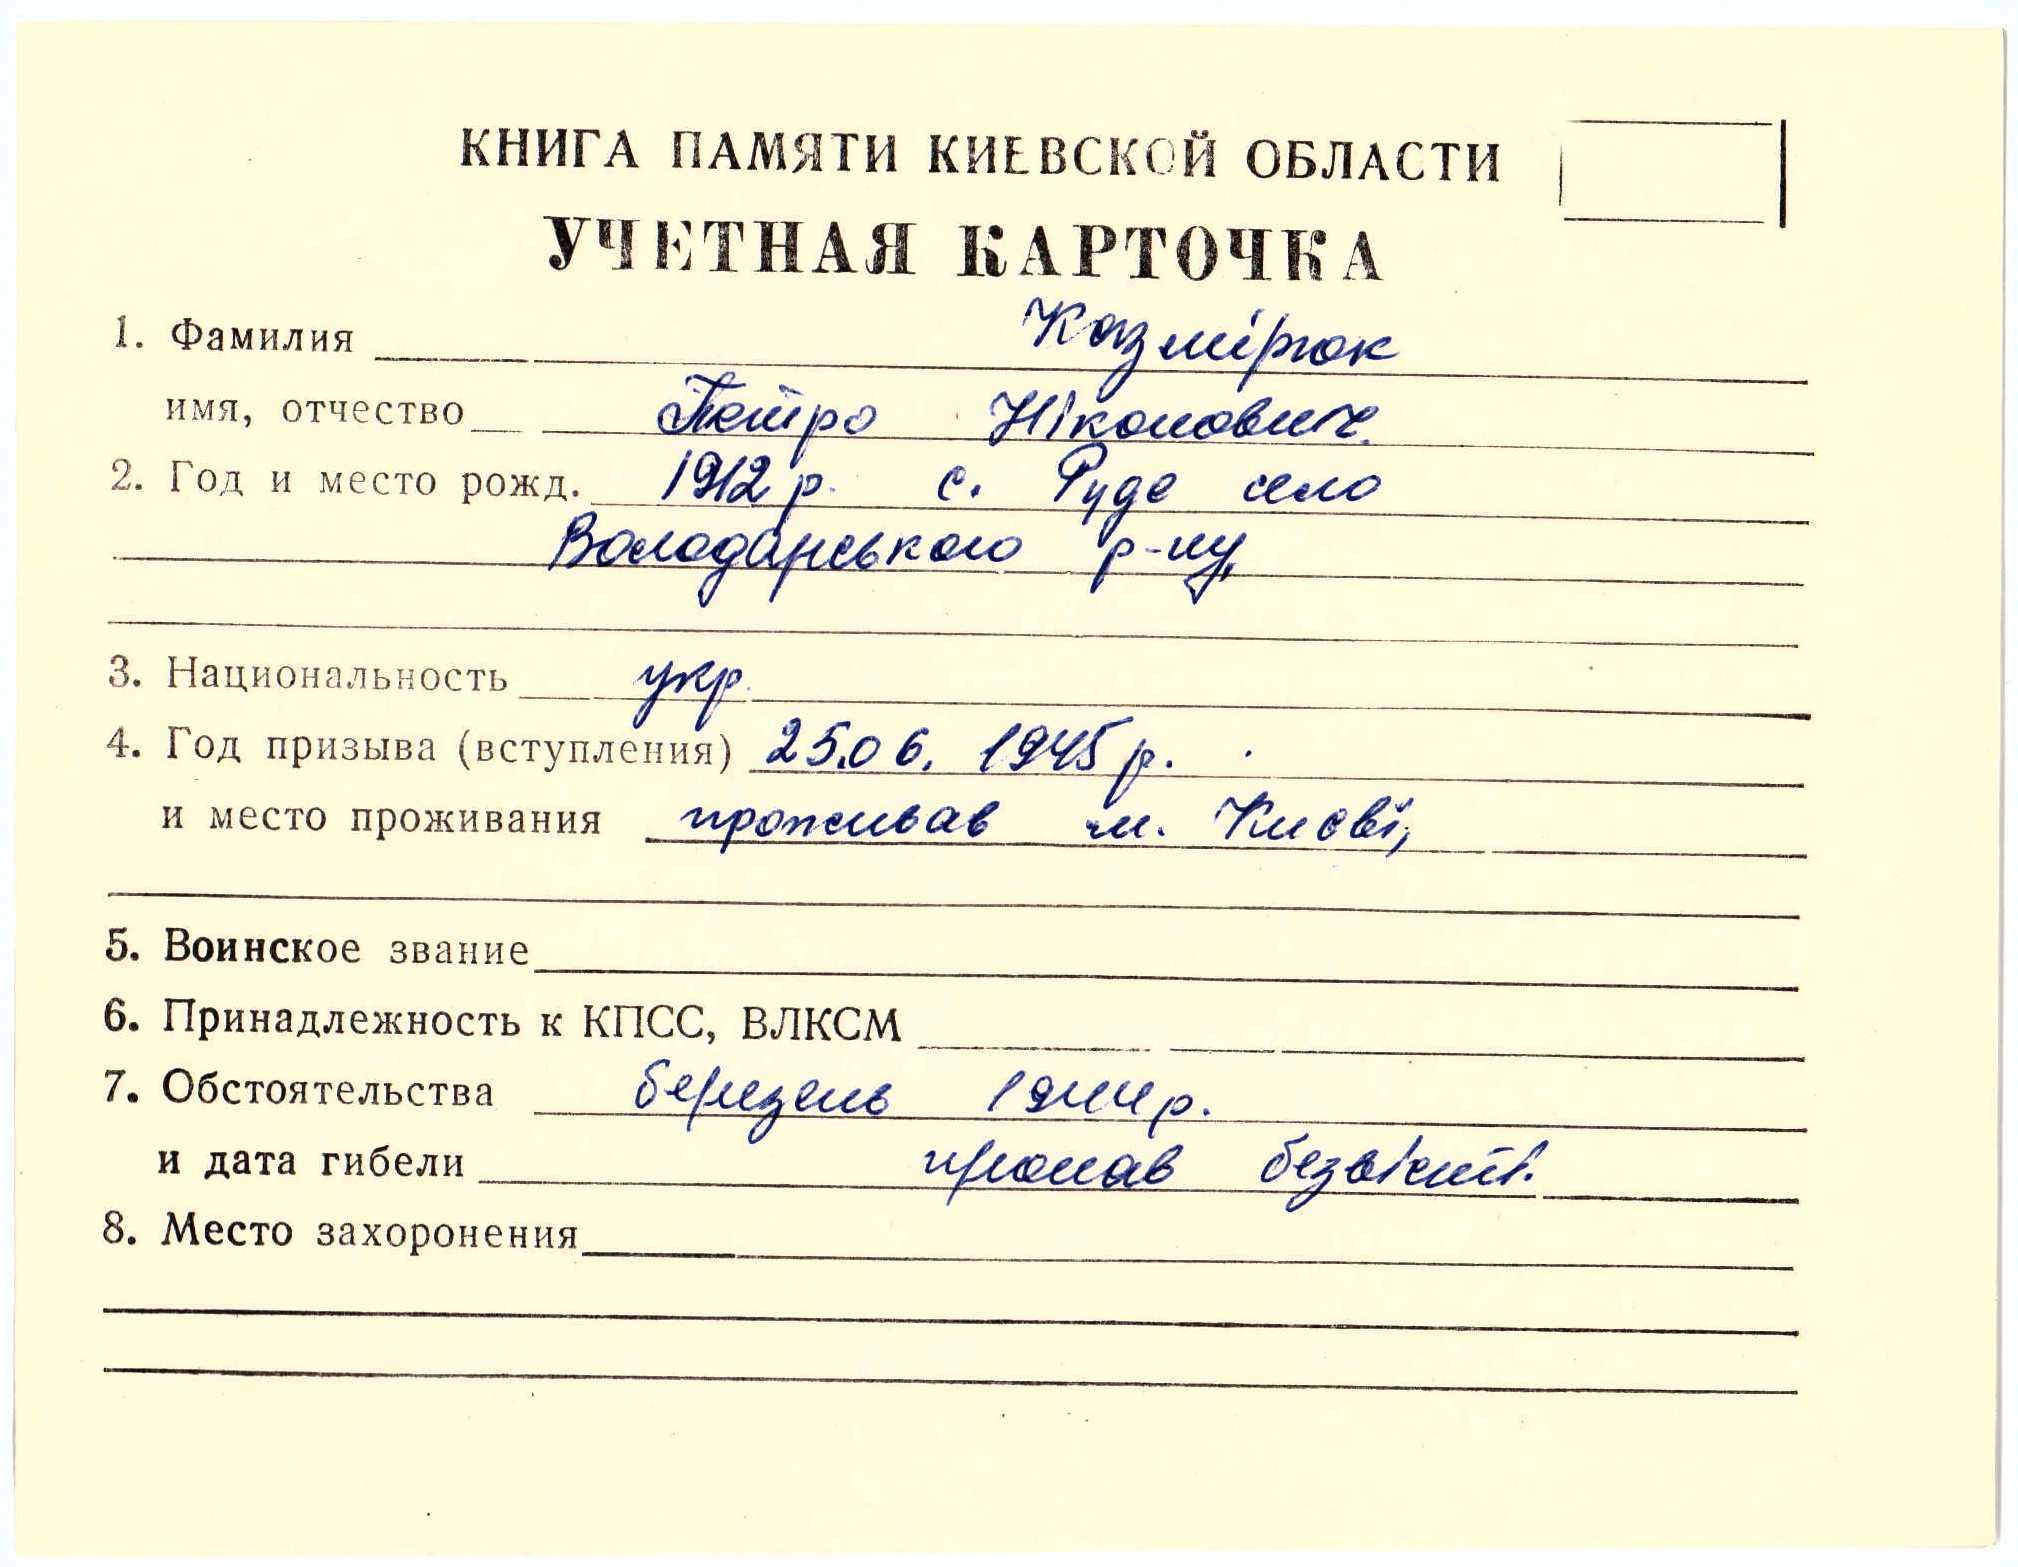 КНИГА ПАМЯТИ КИЕВСКОЙ ОБЛАСТИ
УЧЕТНАЯ КАРТОЧКА
1. Фамилия Казмірюк
имя, отчество Петро Ніконович
2. Год и место рожд. 1912 р. с. Руде село
Володарського р-ну,
3. Национальность укр.
4. Год призыва (вступления) 25.06. 1945 р.
и место проживания проживав м. Києві,
5. Воинское звание
6. Принадлежность к КПСС, ВЛКСМ
7. Обстоятельства березень 1944 р.
и дата гибели пропав безвісті.
8. Место захоронения